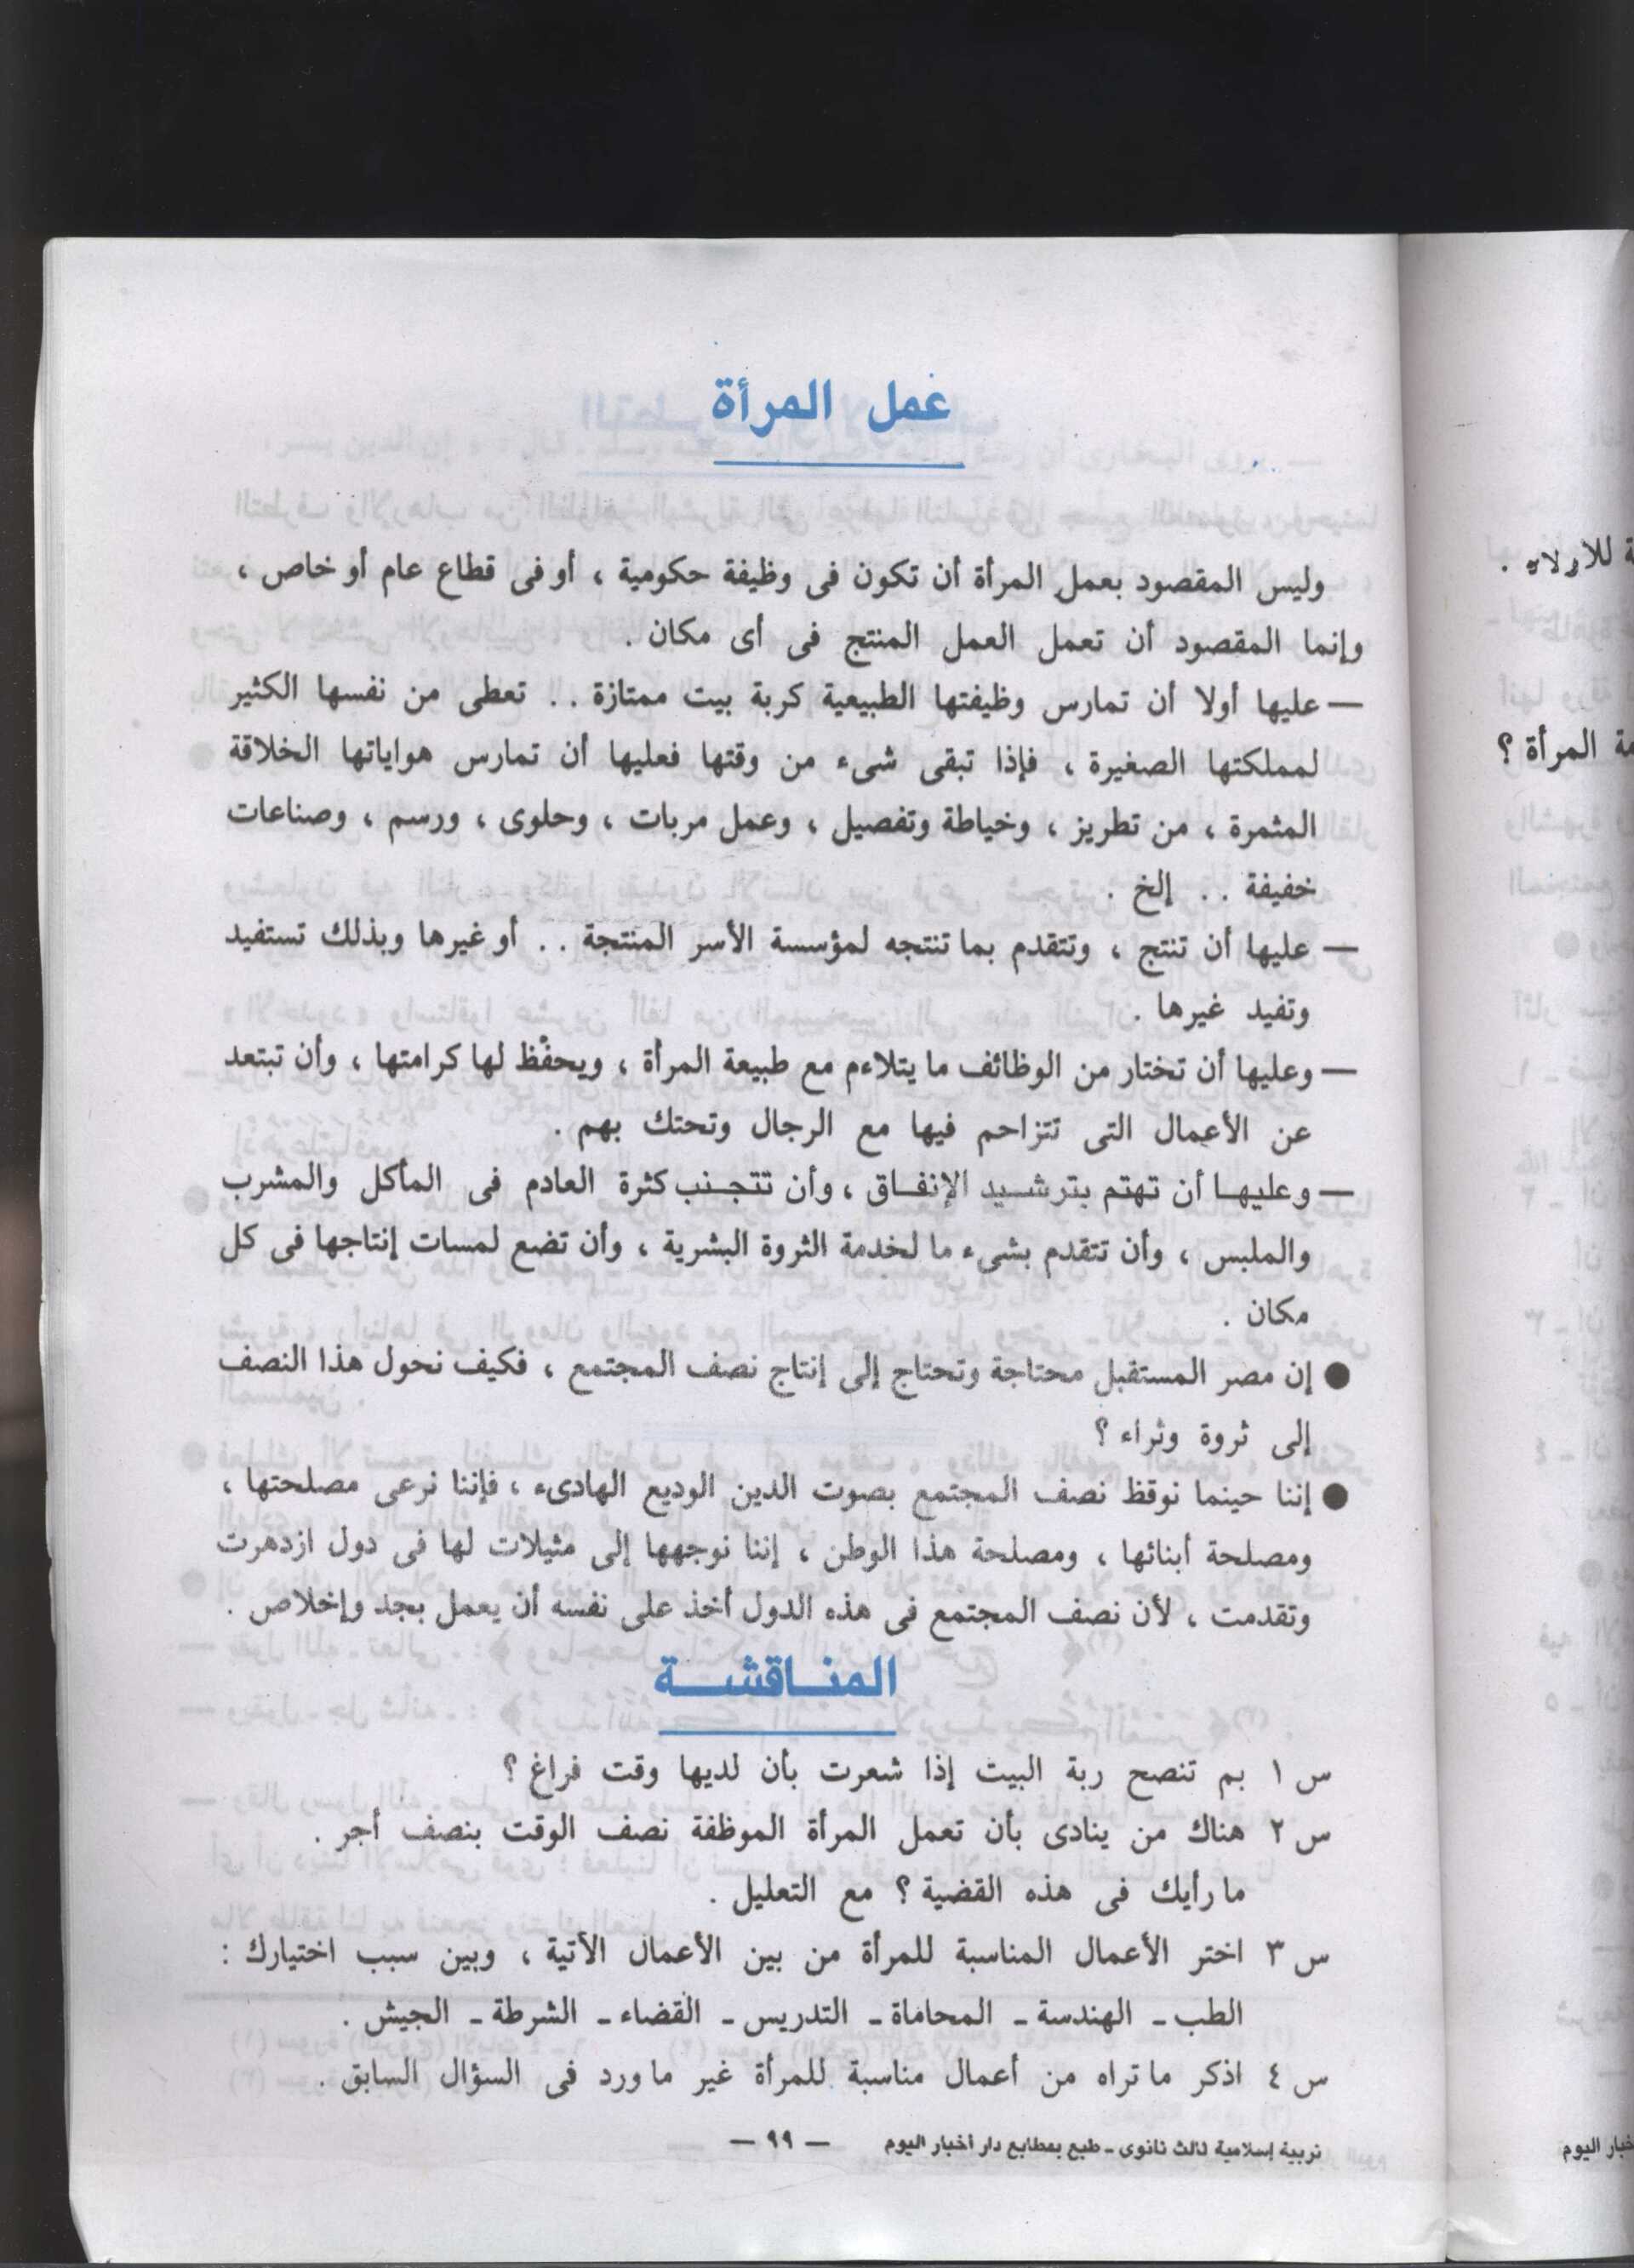 عمل المرأة
وليس المقصود بعمل المرأة أن تكون فى وظيفة حكومية ، أو فى قطاع عام أو خاص ،
وإنما المقصود أن تعمل العمل المنتج فى أى مكان .
— عليها أولا أن تمارس وظيفتها الطبيعية كربة بيت ممتازة .. تعطى من نفسها الكثير
لمملكتها الصغيرة ، فإذا تبقى شىء من وقتها فعليها أن تمارس هواياتها الخلاقة
المثمرة ، من تطريز ، وخياطة وتفصيل ، وعمل مربات ، وحلوى ، ورسم ، وصناعات
خفيفة .. إلخ .
— عليها أن تنتج ، وتتقدم بما تنتجه لمؤسسة الأسر المنتجة .. أو غيرها وبذلك تستفيد
وتفيد غيرها .
— وعليها أن تختار من الوظائف ما يتلاءم مع طبيعة المرأة ، ويحفظ لها كرامتها ، وأن تبتعد
عن الأعمال التى تتزاحم فيها مع الرجال وتحتك بهم .
— وعليها أن تهتم بترشيد الإنفاق ، وأن تتجنب كثرة العادم فى المأكل والمشرب
والملبس ، وأن تتقدم بشىء ما لخدمة الثروة البشرية ، وأن تضع لمسات إنتاجها فى كل
مكان .
● إن مصر المستقبل محتاجة وتحتاج إلى إنتاج نصف المجتمع ، فكيف نحول هذا النصف
إلى ثروة وثراء ؟
● إننا حينما نوقظ نصف المجتمع بصوت الدين الوديع الهادىء ، فإننا نرعى مصلحتها ،
ومصلحة أبنائها ، ومصلحة هذا الوطن ، إننا نوجهها إلى مثيلات لها فى دول ازدهرت
وتقدمت ، لأن نصف المجتمع فى هذه الدول أخذ على نفسه أن يعمل بجد وإخلاص .
المناقشة
س ١ بم تنصح ربة البيت إذا شعرت بأن لديها وقت فراغ ؟
س ٢ هناك من ينادى بأن تعمل المرأة الموظفة نصف الوقت بنصف أجر .
ما رأيك فى هذه القضية ؟ مع التعليل .
س ٣ اختر الأعمال المناسبة للمرأة من بين الأعمال الآتية ، وبين سبب اختيارك :
الطب ـ الهندسة ـ المحاماة ـ التدريس ـ القضاء ـ الشرطة ـ الجيش .
س ٤ اذكر ما تراه من أعمال مناسبة للمرأة غير ما ورد فى السؤال السابق .
تربية إسلامية ثالث ثانوى ـ طبع بمطابع دار أخبار اليوم — ٩٩ —
المرأة ؟
اليوم